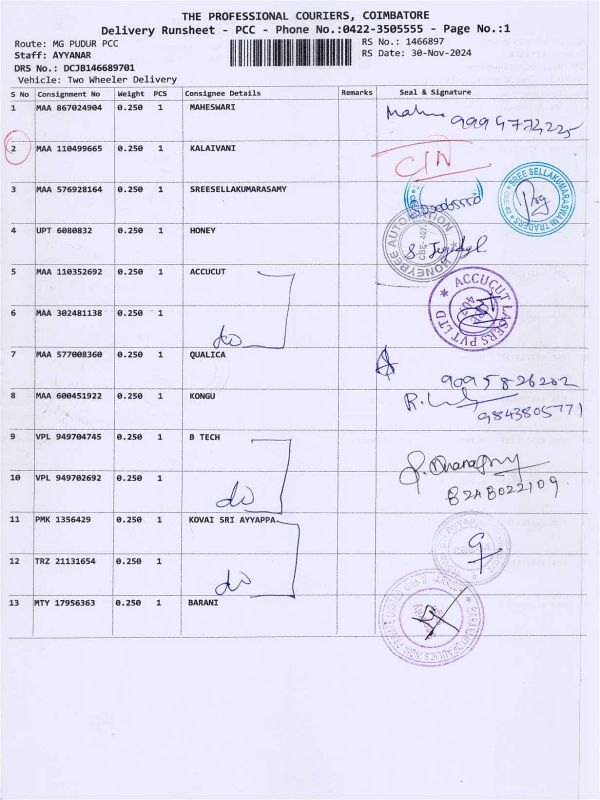 THE PROFESSIONAL COURIERS, COIMBATORE
Delivery Runsheet - PCC - Phone No.:0422-3505555 - Page No.:1
Route: MG PUDUR PCC
Staff: AYYANAR
DRS No.: DCJB146689701
Vehicle: Two Wheeler Delivery
RS No.: 1466897
RS Date: 30-Nov-2024
S No Consignment No Weight PCS Consignee Details Remarks Seal & Signature
1 MAA 867024904 0.250 1 MAHESWARI
9994772225
2 MAA 110499665 0.250 1 KALAIVANI
3 MAA 576928164 0.250 1 SREESELLAKUMARASAMY
SREE SELLAKUMARASWAMI TRADERS
4 UPT 6080832 0.250 1 HONEY
HONEYBEE AUTOMATION
5 MAA 110352692 0.250 1 ACCUCUT
ACCUCUT LASERS PVT LTD
6 MAA 302481138 0.250 1 do
7 MAA 577008360 0.250 1 QUALICA
9095826202
8 MAA 600451922 0.250 1 KONGU
9843805771
9 VPL 949704745 0.250 1 B TECH
10 VPL 949702692 0.250 1 do
8248022109
11 PMK 1356429 0.250 1 KOVAI SRI AYYAPPA
12 TRZ 21131654 0.250 1 do
13 MTY 17956363 0.250 1 BARANI